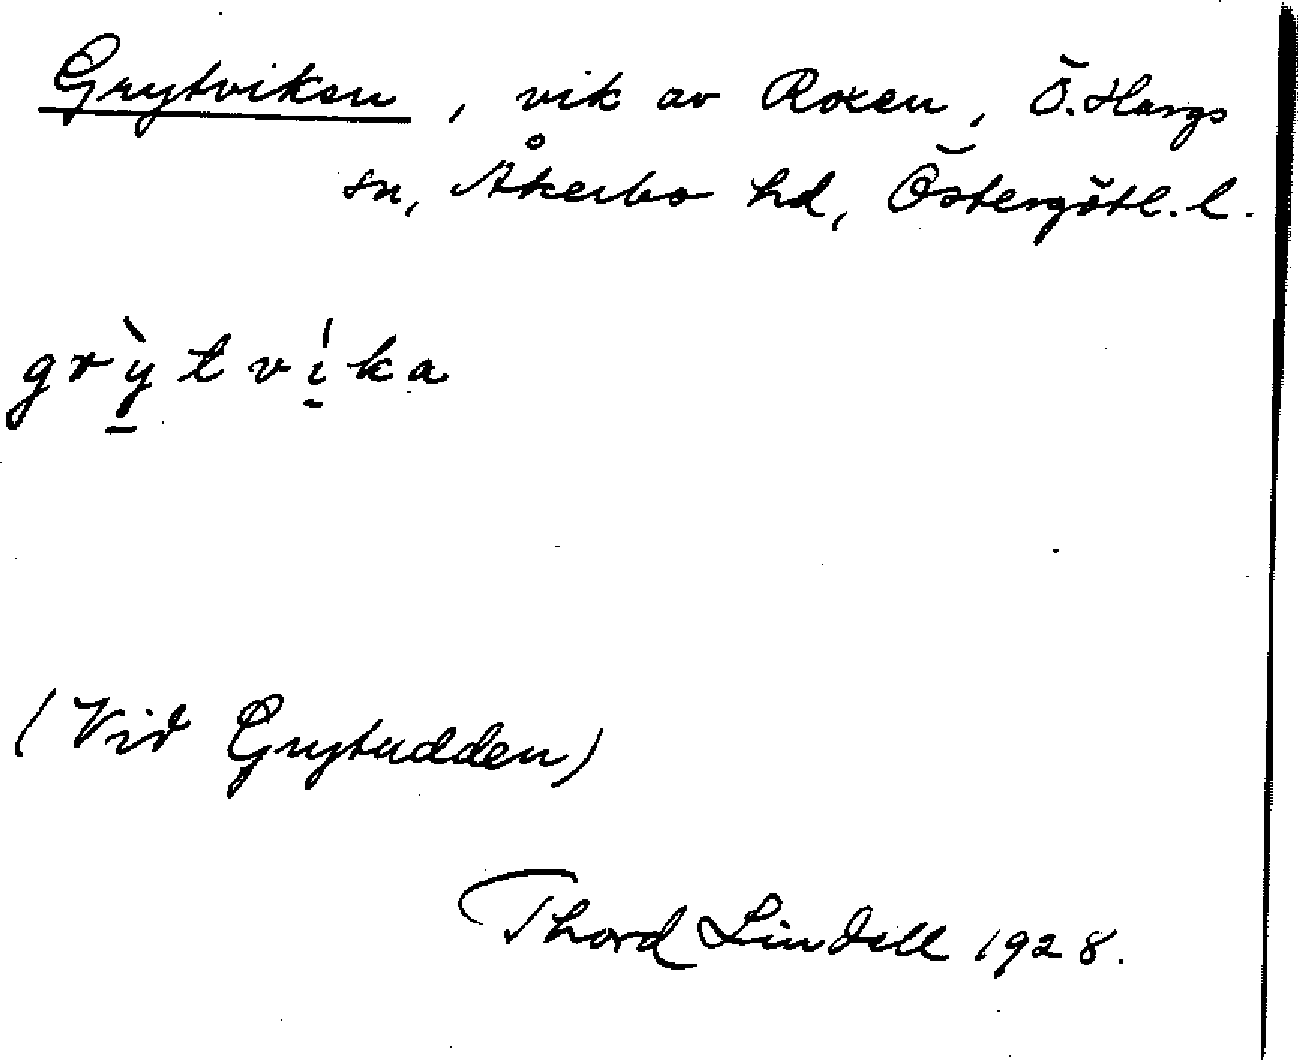 Grytviken, vik av Roxen, Ö. Hargs
sn, Åkerbo hd, Östergötl. l.
grỳ̠tví̠ka
(Vid Grytudden)
Thord Lindell 1928.